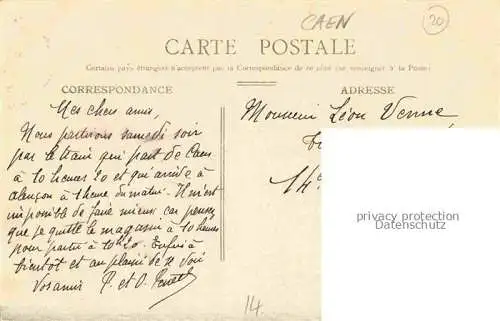 CAEN
20
CARTE POSTALE
Certains pays étrangers n'acceptent pas la Correspondance de ce côté (se renseigner à la Poste)
CORRESPONDANCE
ADRESSE
Mes chers amis,
Nous partirons samedi soir
par le train qui part de Caen
à 10 heures 20 et qui arrive à
alençon à 1 heure du matin. Il m'est
impossible de faire mieux car pensez
que je quitte le magasin à 10 heures
pour partir à 10h20. Enfin à
bientôt et au plaisir de se voir
Vos amis P. et O.
Monsieur Léon Venne,
14
privacy protection
Datenschutz
14